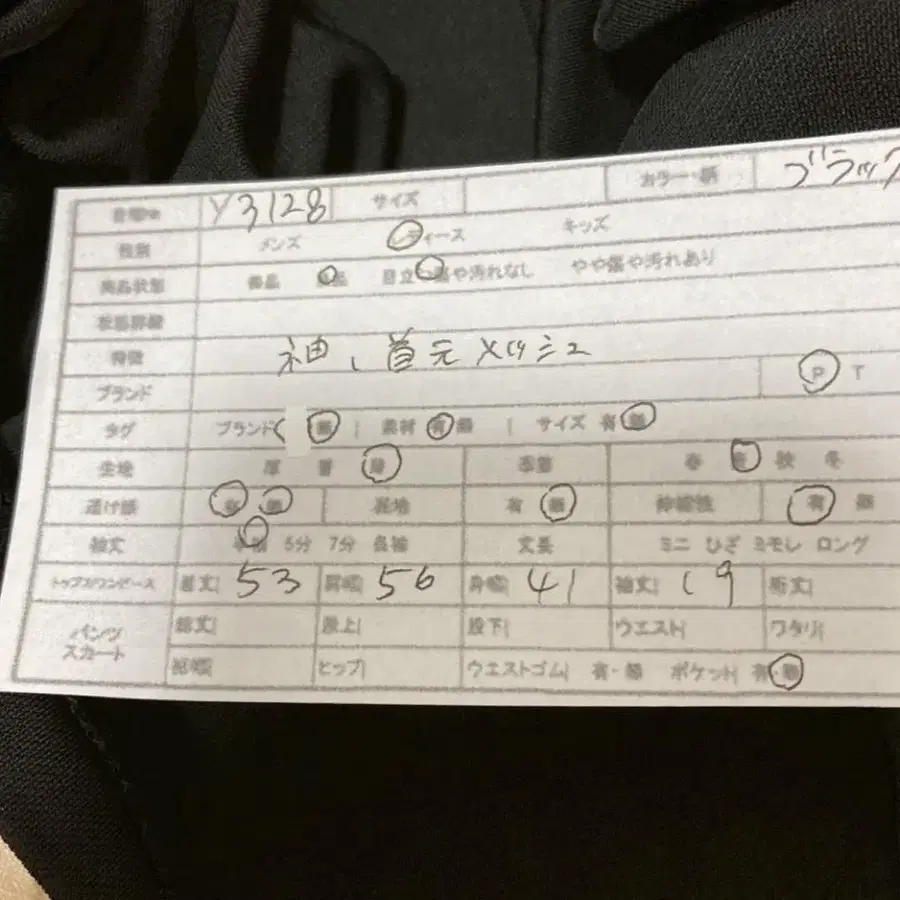 Y3128 サイズ カラー・柄 ブラック
性別 メンズ レディース キッズ
商品状態 美品 目立 傷や汚れなし やや傷や汚れあり
状態詳細
特徴 袖、首元メッシュ
ブランド P T
タグ ブランド 無 | 素材 有 無 | サイズ 有 無
生地 厚 普 薄 季節 春 夏 秋 冬
透け感 有 無 裏地 有 無 伸縮性 有 無
袖丈 半袖 5分 7分 長袖 丈長 ミニ ひざ ミモレ ロング
トップス/ワンピース 着丈| 53 肩幅| 56 身幅| 41 袖丈| 19 裄丈|
パンツ スカート 総丈| 股上| 股下| ウエスト| ワタリ|
裾幅| ヒップ| ウエストゴム| 有・無 ポケット| 有・無